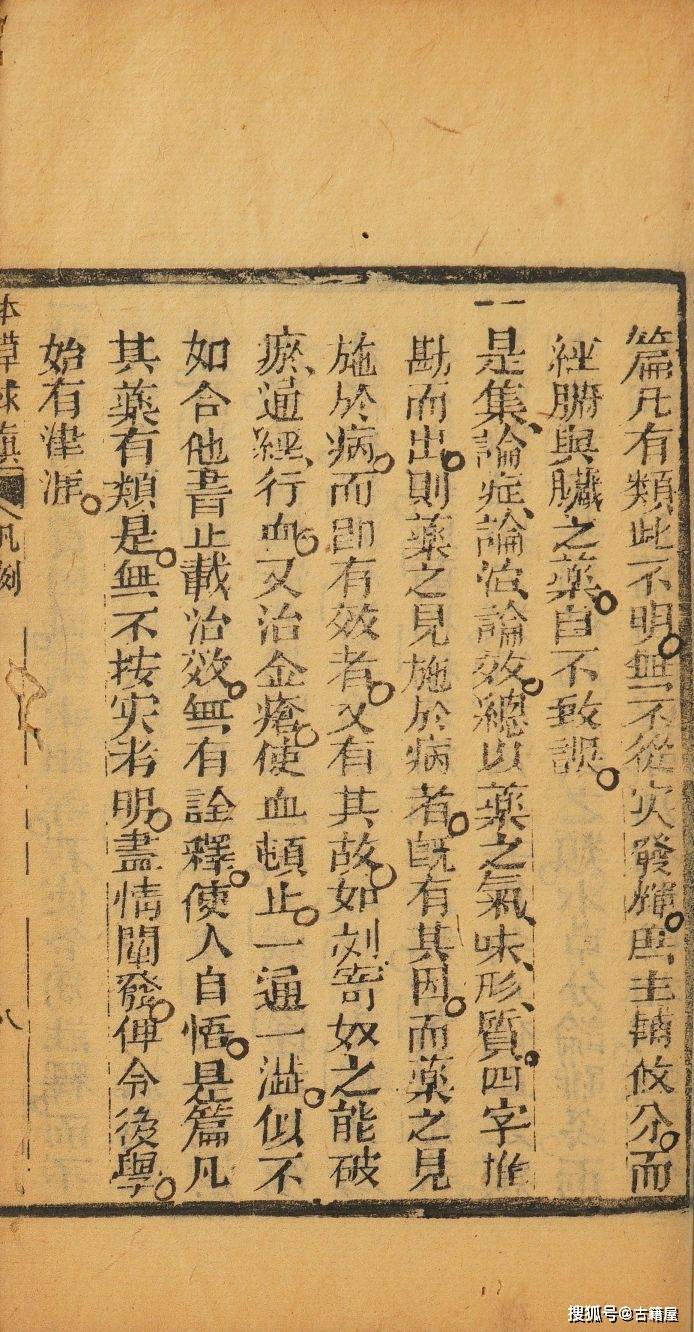 篇凡有類此不明。無不從实發揮。庶主輔攸分。而
經腑與臟之藥。自不致誤。
一是集、論症、論治、論效。總以藥之氣、味、形、質。四字推
勘而出。則藥之見施於病者。旣有其因。而藥之見
施於病。而即有效者。又有其故。如刘寄奴之能破
瘀、通經、行血。又治金瘡。使血頓止。一通一澁。似不
如合他書止載治效。無有詮釋。使人自悟。是篇凡
其藥有類是。無不按实考明。盡情闡發。俾令後學。
始有津涯。
本草求眞 凡例 八
搜狐号@古籍屋